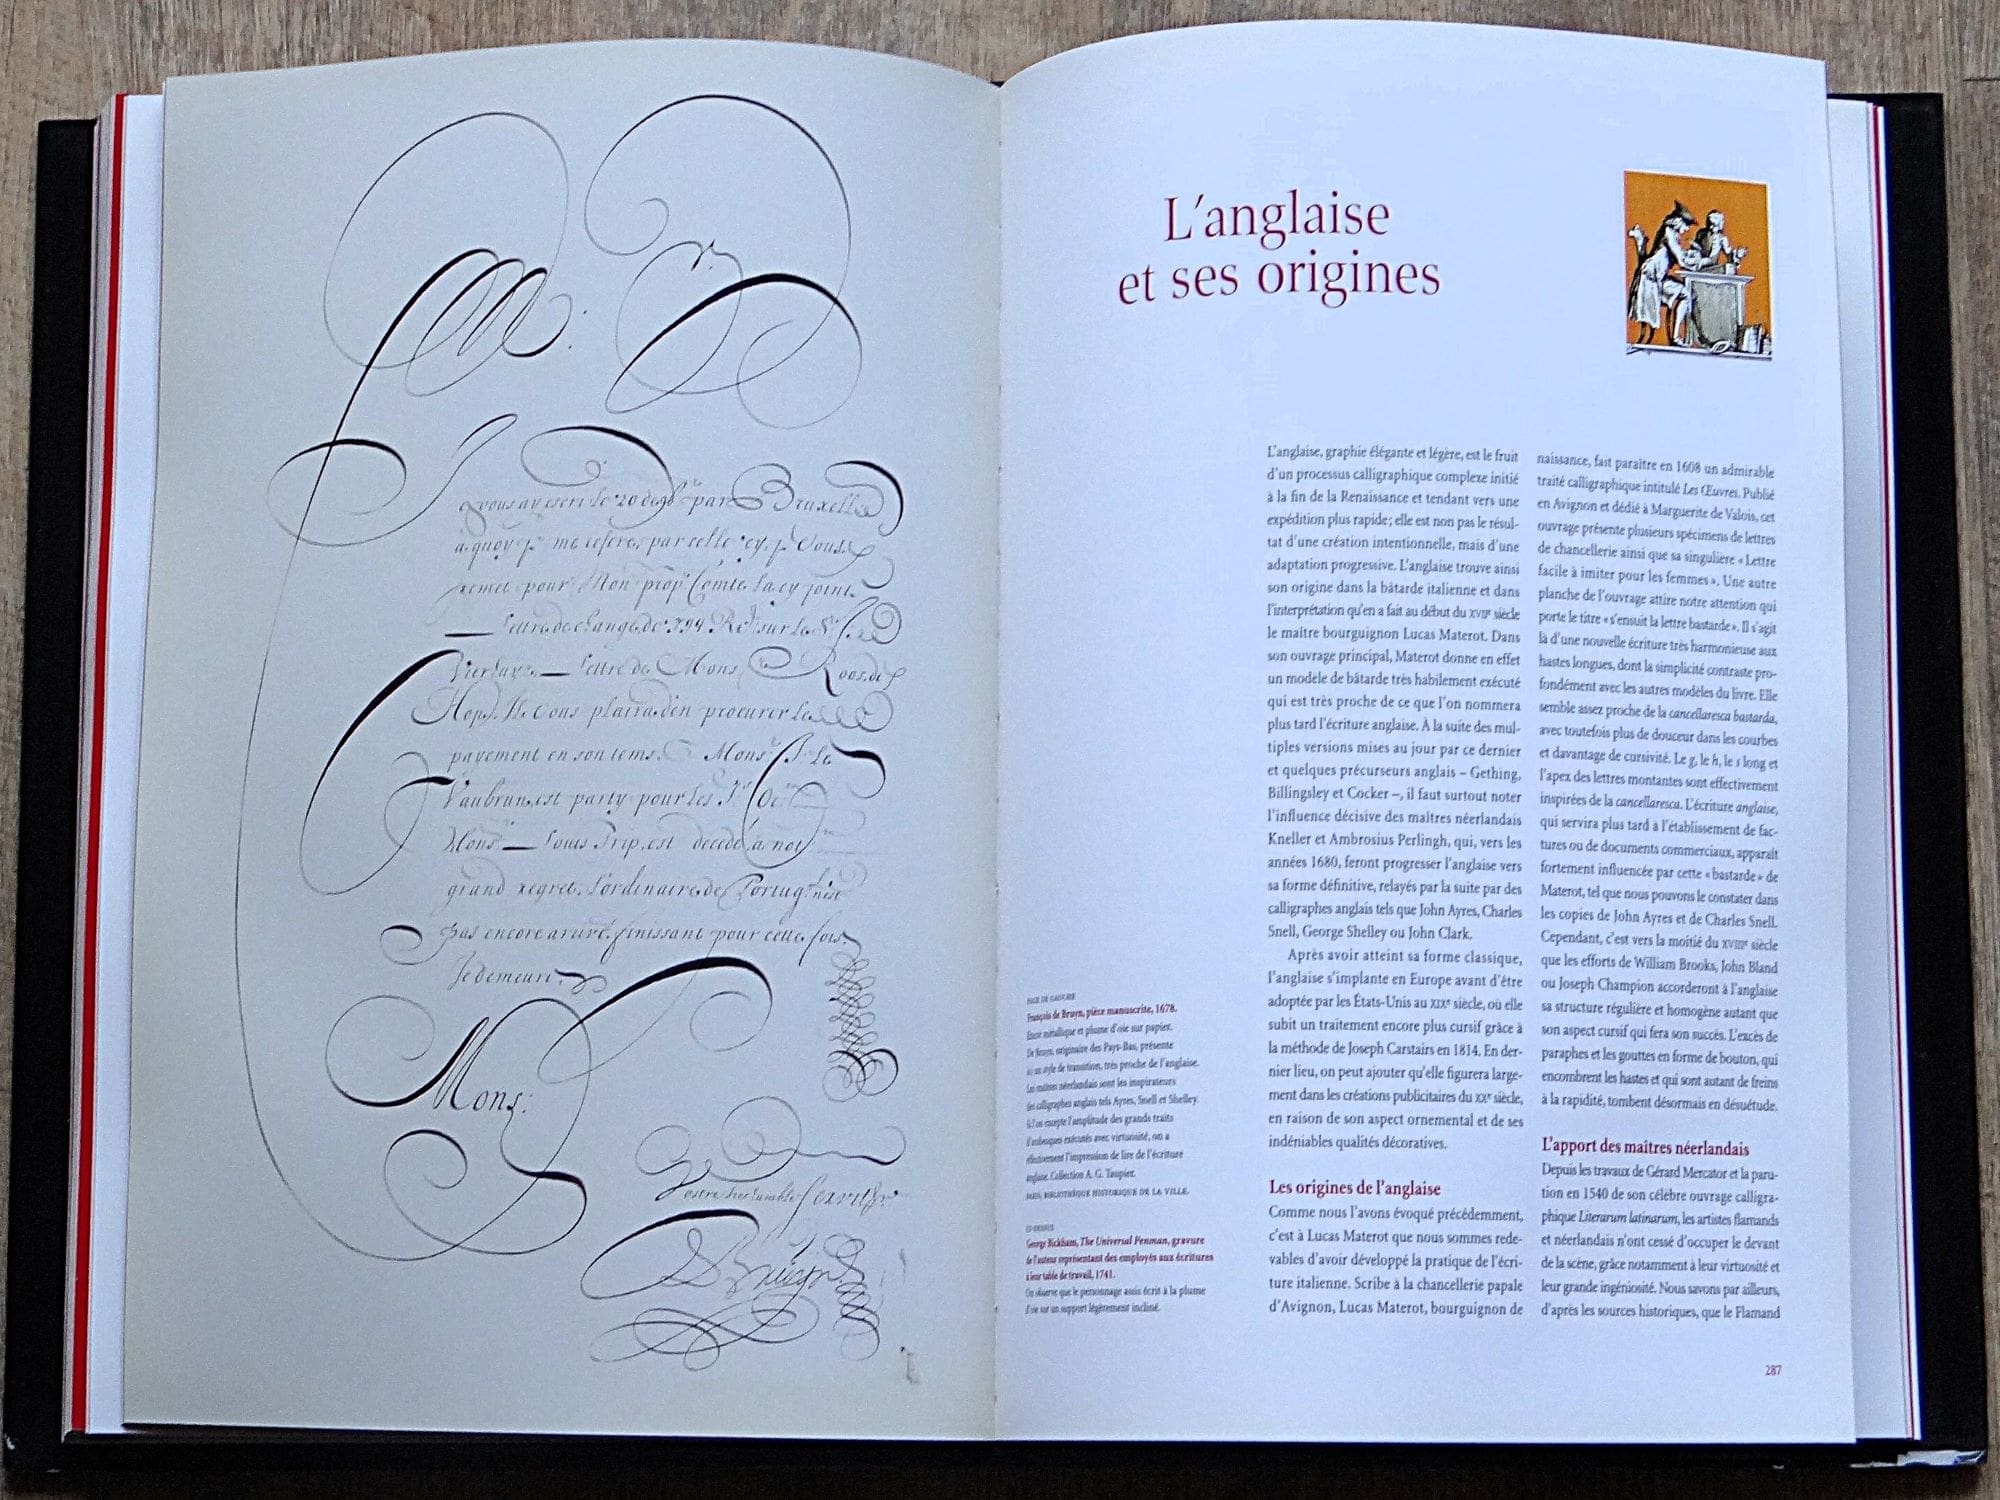 M:
vous ay escri le 20 de par Bruxelle
a quoy je me refere, par celle cy, je Vous
remet pour Mon prop Comte la cy joint
Lettre de change de 394 sur le Sr
Lettre de Mons Roos de
Hop. Il Vous plaira d'en procurer le
payement en son tems. Mons
Vaubrun, est party pour les
Mons Louis Trip, est decedé à not
grand regret, L'ordinaire de Portug
pas encore arivé, finissant pour cette fois.
Je demeure
Mons:
Vostre tres humble Servit
D Bruyn
L'anglaise
et ses origines
L'anglaise, graphie élégante et légère, est le fruit
d'un processus calligraphique complexe initié
à la fin de la Renaissance et tendant vers une
expédition plus rapide ; elle est non pas le résul-
tat d'une création intentionnelle, mais d'une
adaptation progressive. L'anglaise trouve ainsi
son origine dans la bâtarde italienne et dans
l'interprétation qu'en a fait au début du XVIIe siècle
le maître bourguignon Lucas Materot. Dans
son ouvrage principal, Materot donne en effet
un modèle de bâtarde très habilement exécuté
qui est très proche de ce que l'on nommera
plus tard l'écriture anglaise. À la suite des mul-
tiples versions mises au jour par ce dernier
et quelques précurseurs anglais – Gething,
Billingsley et Cocker –, il faut surtout noter
l'influence décisive des maîtres néerlandais
Kneller et Ambrosius Perlingh, qui, vers les
années 1680, feront progresser l'anglaise vers
sa forme définitive, relayés par la suite par des
calligraphes anglais tels que John Ayres, Charles
Snell, George Shelley ou John Clark.
Après avoir atteint sa forme classique,
l'anglaise s'implante en Europe avant d'être
adoptée par les États-Unis au XIXe siècle, où elle
subit un traitement encore plus cursif grâce à
la méthode de Joseph Carstairs en 1814. En der-
nier lieu, on peut ajouter qu'elle figurera large-
ment dans les créations publicitaires du XXe siècle,
en raison de son aspect ornemental et de ses
indéniables qualités décoratives.
Les origines de l'anglaise
Comme nous l'avons évoqué précédemment,
c'est à Lucas Materot que nous sommes rede-
vables d'avoir développé la pratique de l'écri-
ture italienne. Scribe à la chancellerie papale
d'Avignon, Lucas Materot, bourguignon de
naissance, fait paraître en 1608 un admirable
traité calligraphique intitulé Les Œuvres. Publié
en Avignon et dédié à Marguerite de Valois, cet
ouvrage présente plusieurs spécimens de lettres
de chancellerie ainsi que sa singulière « Lettre
facile à imiter pour les femmes ». Une autre
planche de l'ouvrage attire notre attention qui
porte le titre « s'ensuit la lettre bastarde ». Il s'agit
là d'une nouvelle écriture très harmonieuse aux
hastes longues, dont la simplicité contraste pro-
fondément avec les autres modèles du livre. Elle
semble assez proche de la cancellaresca bastarda,
avec toutefois plus de douceur dans les courbes
et davantage de cursivité. Le g, le h, le s long et
l'apex des lettres montantes sont effectivement
inspirées de la cancellaresca. L'écriture anglaise,
qui servira plus tard à l'établissement de fac-
tures ou de documents commerciaux, apparaît
fortement influencée par cette « bastarde » de
Materot, tel que nous pouvons le constater dans
les copies de John Ayres et de Charles Snell.
Cependant, c'est vers la moitié du XVIIIe siècle
que les efforts de William Brooks, John Bland
ou Joseph Champion accorderont à l'anglaise
sa structure régulière et homogène autant que
son aspect cursif qui fera son succès. L'excès de
paraphes et les gouttes en forme de bouton, qui
encombrent les hastes et qui sont autant de freins
à la rapidité, tombent désormais en désuétude.
L'apport des maîtres néerlandais
Depuis les travaux de Gérard Mercator et la paru-
tion en 1540 de son célèbre ouvrage calligra-
phique Literarum latinarum, les artistes flamands
et néerlandais n'ont cessé d'occuper le devant
de la scène, grâce notamment à leur virtuosité et
leur grande ingéniosité. Nous savons par ailleurs,
d'après les sources historiques, que le Flamand
PAGE DE GAUCHE
François de Bruyn, pièce manuscrite, 1678.
Encre métallique et plume d'oie sur papier.
De Bruyn, originaire des Pays-Bas, présente
ici un style de transition, très proche de l'anglaise.
Les maîtres néerlandais sont les inspirateurs
des calligraphes anglais tels Ayres, Snell et Shelley.
Si l'on excepte l'amplitude des grands traits
d'arabesques exécutés avec virtuosité, on a
effectivement l'impression de lire de l'écriture
anglaise. Collection A. G. Taupier.
PARIS, BIBLIOTHÈQUE HISTORIQUE DE LA VILLE.
CI-DESSUS
George Bickham, The Universal Penman, gravure
de l'auteur représentant des employés aux écritures
à leur table de travail, 1741.
On observe que le personnage assis écrit à la plume
d'oie sur un support légèrement incliné.
287